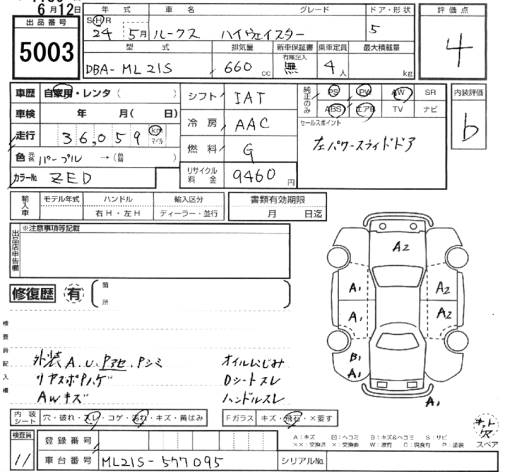 6月12日
出品番号
5003
年式 車名 グレード ドア・形状 評価点
24年 5月 ルークス ハイウェイスター 5
4
型式 排気量 新車保証書 乗車定員 最大積載量
有 無
DBA-ML21S 660cc 無 4人 kg
車歴 自家用・レンタ( )
シフト IAT
純正のみ PS PW AW SR
ABS エアB TV ナビ
内装評価
b
車検 年 月( 日)
冷房 AAC
セールスポイント
左パワースライドドア
走行 36,059 km マイル
燃料 G
色 元色 パープル →(前 色)
リサイクル料金 9460円
カラーNo ZED
輸入車 モデル年式 ハンドル 輸入区分
右H・左H ディーラー・並行
書類有効期限
月 日迄
出品店申告欄
※注意事項等記載
修復歴 有 箇所
検査員記入欄
外装 A.U.Pアセ.Pシミ
リヤスポPハゲ
AWキズ
オイルにじみ
Dシートスレ
ハンドルスレ
A2
A2
A1
A2
A1
A2
B1
A1
A1
キット欠
スペア
内装シート 穴・破れ・スレ・コゲ・汚れ・キズ・黄ばみ
Fガラス キズ・飛石・×要す
検査員
11
登録番号
車台番号 ML21S-577095
シリアルNo.
A:キズ B:キズ&ヘコミ S:サビ
×:交換 P:塗装